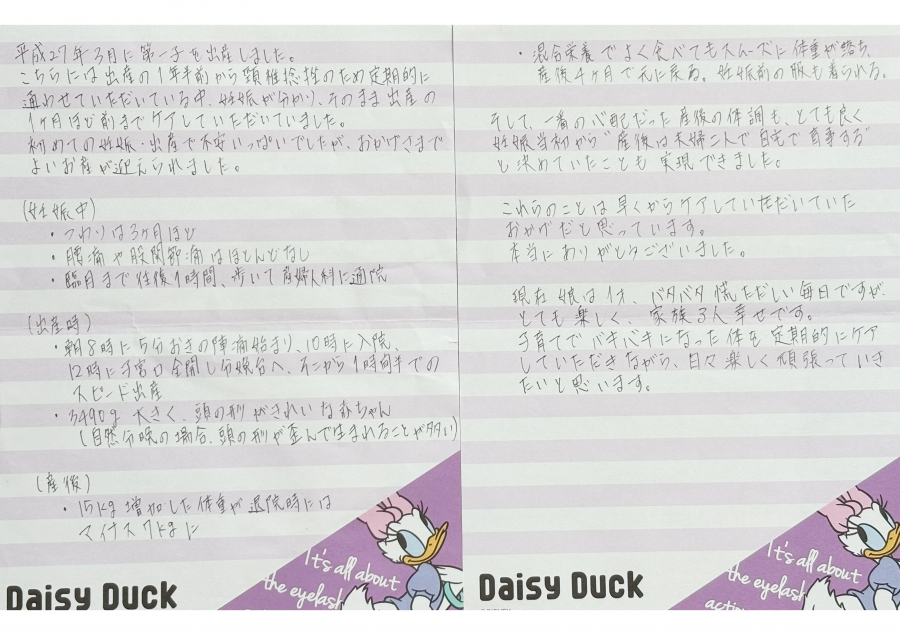 平成27年3月に第一子を出産しました。
こちらには出産の1年半前から頸椎捻挫のため定期的に
通わせていただいている中、妊娠が分かり、そのまま出産の
1ヶ月ほど前までケアしていただいていました。
初めての妊娠・出産で不安いっぱいでしたが、おかげさまで
よいお産が迎えられました。
(妊娠中)
・つわりは3ヶ月ほど
・腰痛や股関節痛はほとんどなし
・臨月まで往復1時間、歩いて産婦人科に通院
(出産時)
・朝8時に5分おきの陣痛始まり、10時に入院、
12時に子宮口全開し分娩台へ、そこから1時間半での
スピード出産
・3490g 大きく、頭の形がきれいな赤ちゃん
(自然分娩の場合、頭の形が歪んで生まれることが多い)
(産後)
・15kg増加した体重が退院時には
マイナス7kgに
It's all about
the eyelash
Daisy Duck
・混合栄養でよく食べてもスムーズに体重が落ち、
産後4ヶ月で元に戻る。妊娠前の服も着られる。
そして、一番の心配だった産後の体調も、とても良く
妊娠当初から"産後は夫婦二人で自宅で育事する"
と決めていたことも実現できました。
これらのことは早くからケアしていただいていた
おかげだと思っています。
本当にありがとうございました。
現在娘は1才、バタバタ慌ただしい毎日ですが、
とても楽しく、家族3人幸せです。
子育てでバキバキになった体を定期的にケア
していただきながら、日々楽しく頑張っていき
たいと思います。
It's all about
the eyelash
action
Daisy Duck